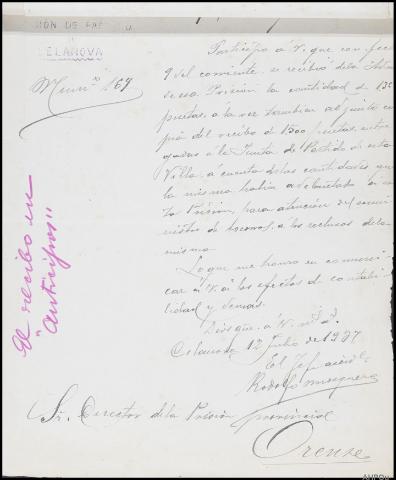 CELANOVA
Núm. 169
Participo á V. que con fecha
9 del corriente, se recibió de la
esa Prisión la cantidad de
pesetas, á la vez tambien adjunto co
pia del recibo de 1500 pesetas, entre
gadas á la Junta de Partido de esta
Villa, á cuenta de las cantidades que
la misma habia adelantado á es
ta Prisión, para atención de sumi
nistro de socorros, a los reclusos de la
misma
Lo que me honro en comuni
car á V. á los efectos de contabi
lidad y demas.
Dios gue. á V. m. a.
Celanova 12 Julio de 1937
El Jefe
Rodolfo Mosquera
Sr. Director de la Prisión provincial
Orense
El recibo en
"anticipos"